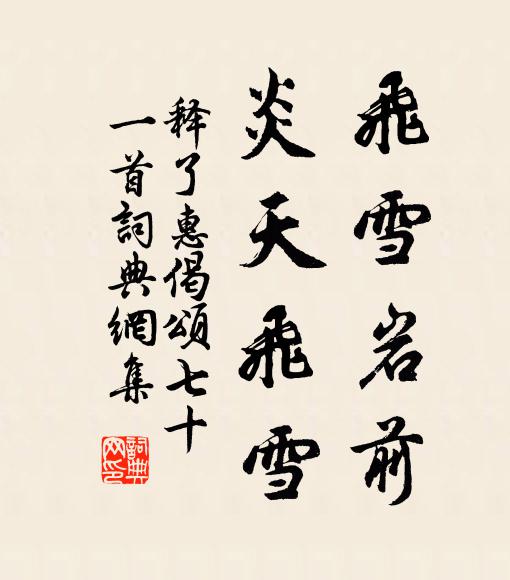 飛雪岩前
炎天飛雪
释了惠偈頌七十
一首詞典網集
詞典
网印